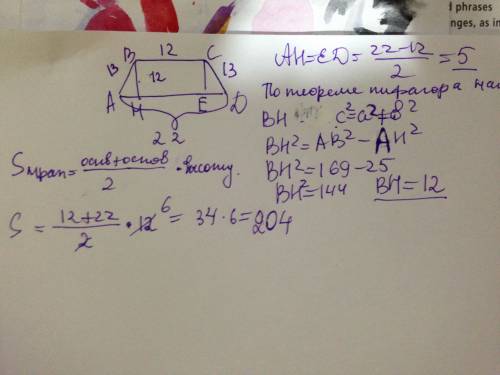 l phrases
nges, as in
B 12 C
13 12 13
A H E D
22
AH=ED=(22-12)/2=5
По теореме пифагора
BH c²=a²+b²
BH²=AB²-AH²
BH²=169-25
BH²=144 BH=12
Sтрап=(осн+основ)/2 · высоту.
S = (12+22)/2 · 12 6 = 34·6=204